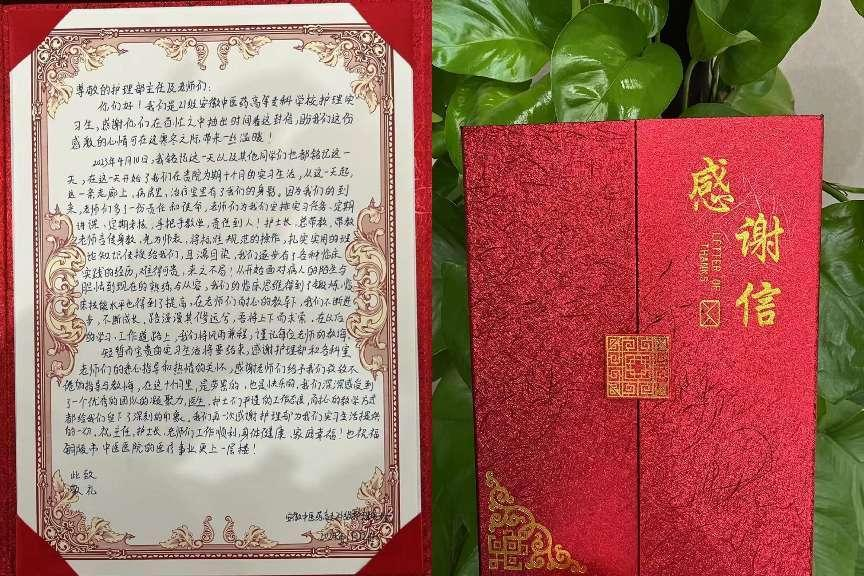 尊敬的护理部主任及老师们:
你们好!我们是21级安徽中医药高等专科学校护理实
习生,感谢你们在百忙之中抽出时间看这封信,助我们这份
感激的心情可在这寒冬之际带来一丝温暖!
2023年4月10日,我铭记这一天以及其他同学们也都铭记这一
天,在这一天开始了我们在贵院为期十个月的实习生活,从这一天起,
这一条走廊上,病房里,治疗室里有了我们的身影,因为我们的到
来,老师们多了一份责任和使命,老师们为我们安排实习任务、定期
讲课、定期考核、手把手教学,责任到人!护士长、总带教、带教
老师言传身教,先为师表,将标准规范的操作,扎实实用的理
论知识传授给我们,耳濡目染,我们逐步有了各种临床
实践的经历,难得可贵,来之不易!从开始面对病人的陌生与
胆怯到现在的熟练与从容,我们的临床思维得到了锻炼,临
床技能水平也得到了提高,在老师们的教导下,我们不断进
步,不断成长,路漫漫其修远兮,吾将上下而求索,在以后
的学习、工作道路上,我们将风雨兼程,谨记每位老师的教诲。
短暂而宝贵的实习生活将要结束,感谢护理部和各科室
老师们的悉心指导和热情的关怀,感谢老师们给予我们孜孜不
倦的指导与教诲,在这十个月里,是劳累的,也是快乐的,我们深深感受到
了一个优秀的团队的凝聚力,医生、护士们严谨的工作态度,高批的教学方式
都给我们留下了深刻的印象,我们再一次感谢护理部为我们实习生活提供
的一切,祝主任、护士长、老师们工作顺利,身体健康、家庭幸福!也祝福
铜陵市中医医院的医疗事业更上一层楼!
此致
敬礼
安徽中医药高专21级
感谢信
LETTER OF
THANKS